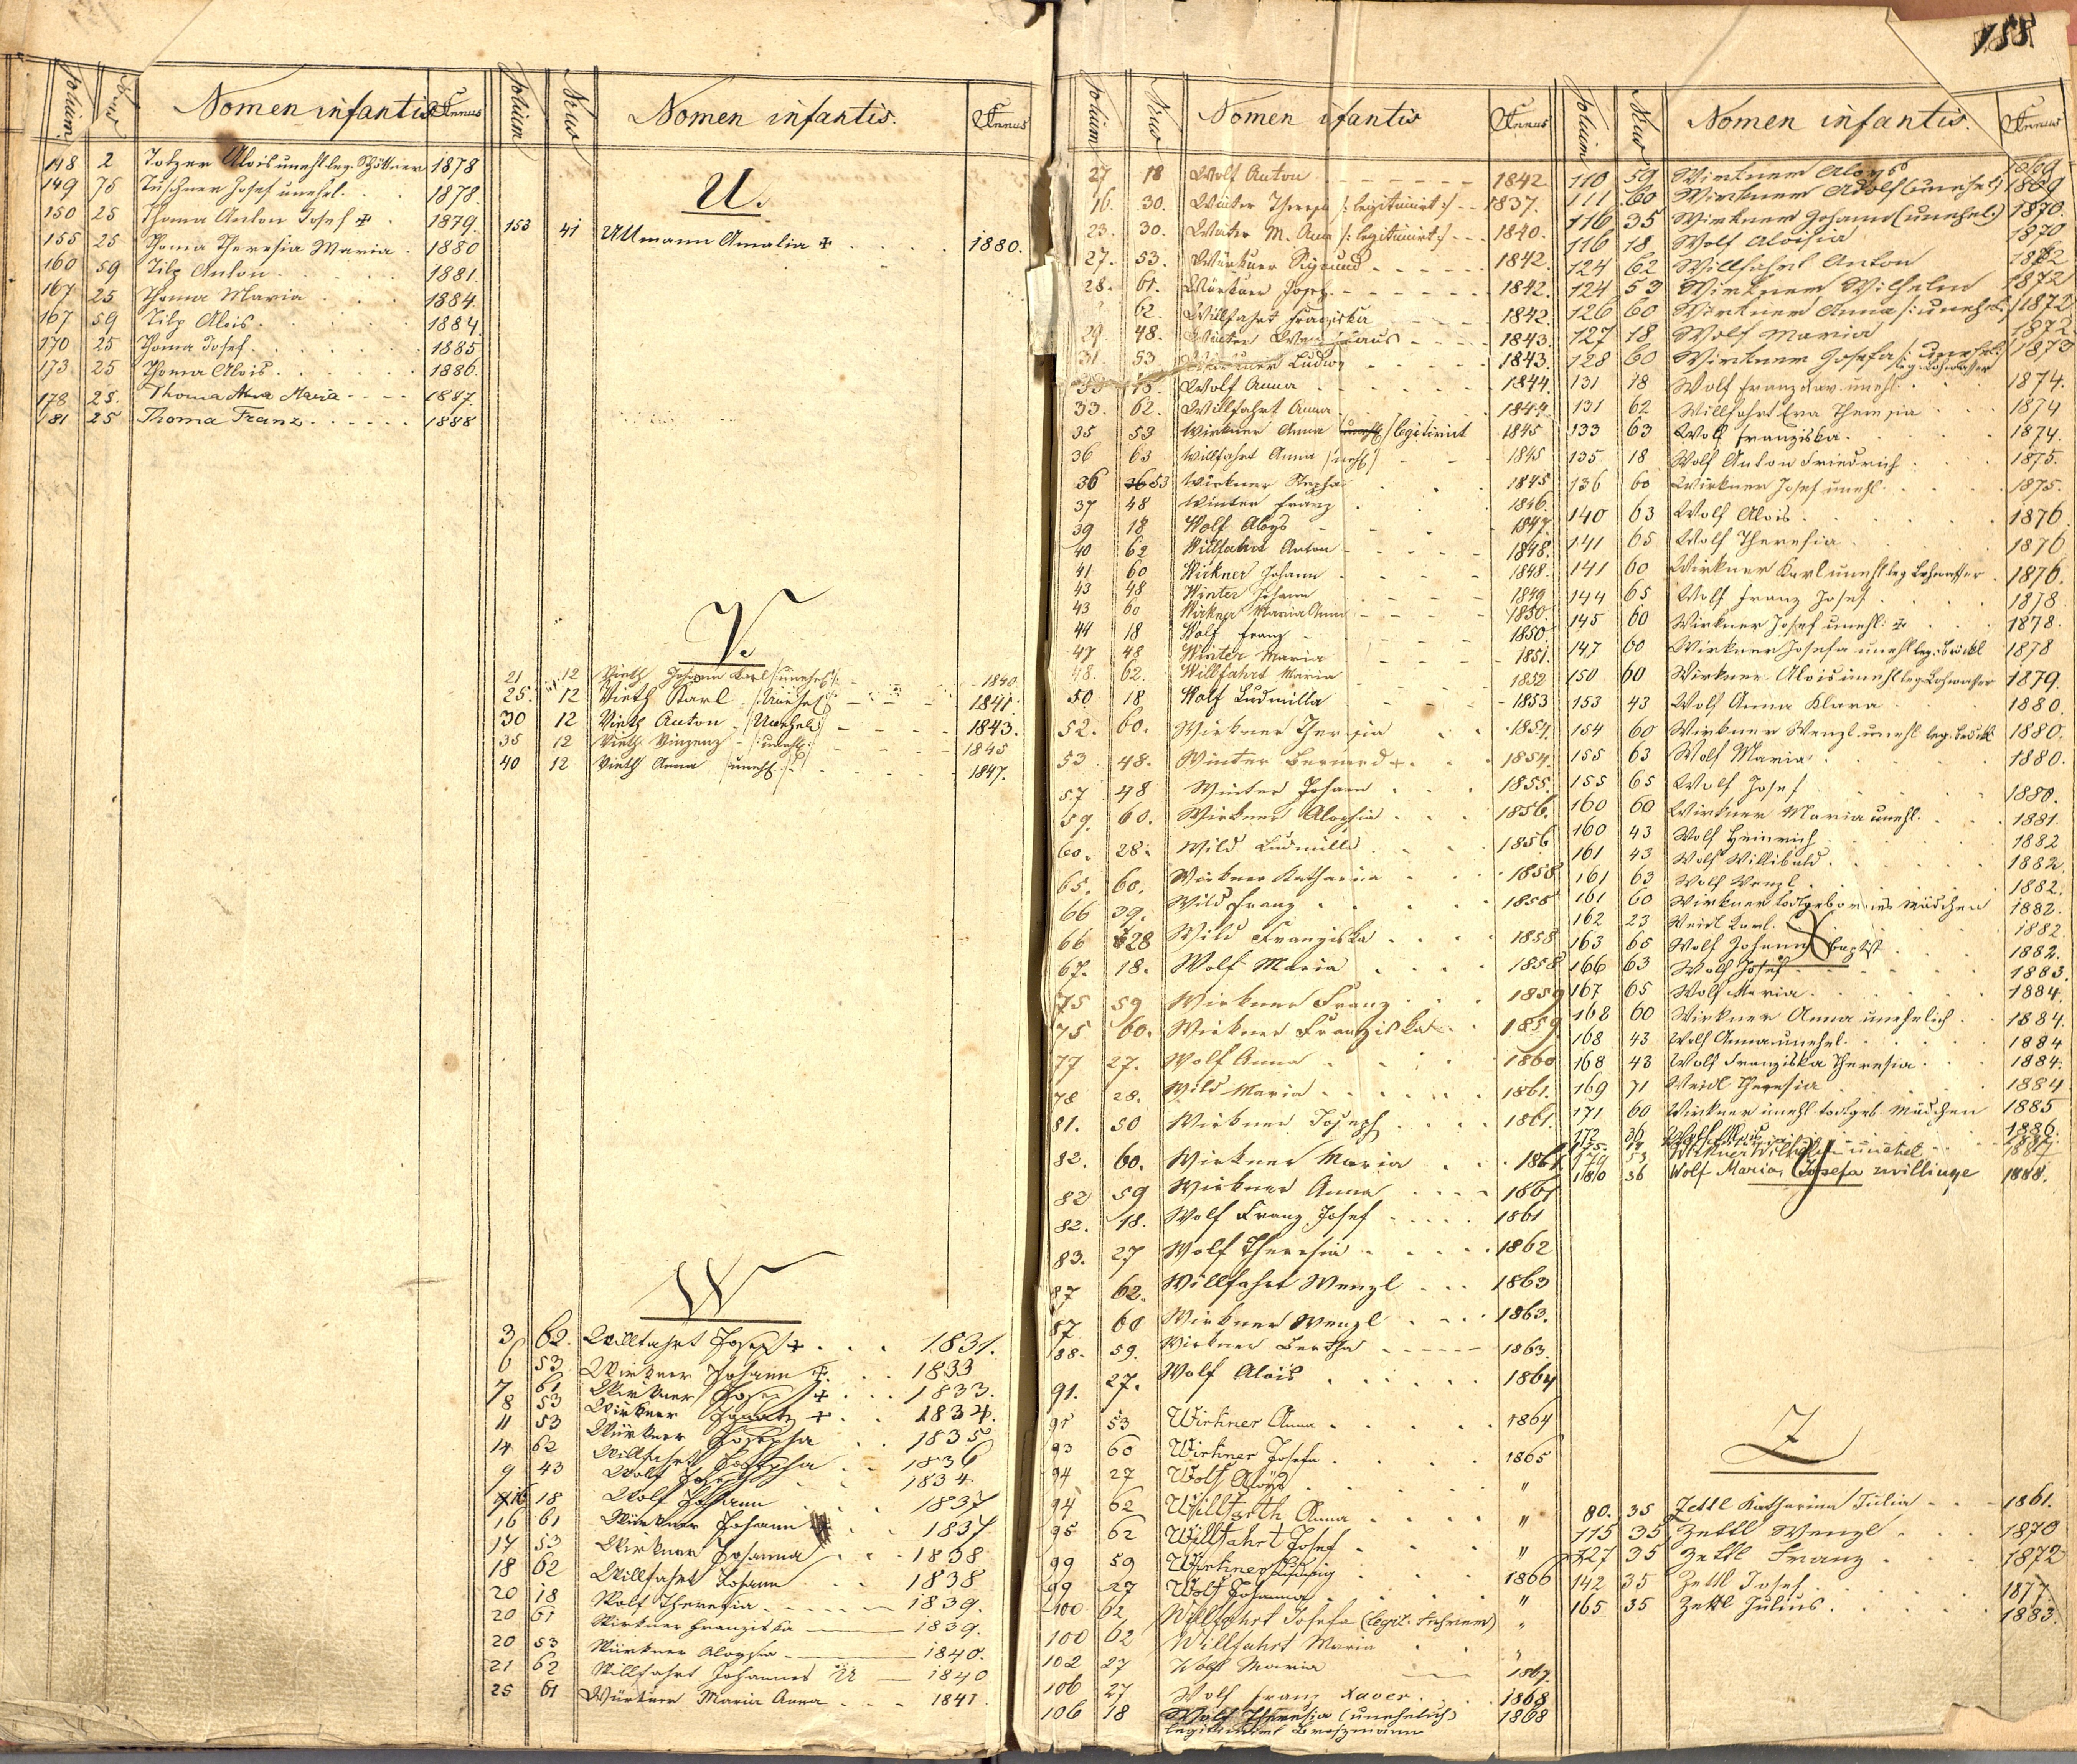 155
Folium Nrus Nomen infantis Annus
148 2 Totzer Alois unehl. leg. 1878
149 75 Tuschner Josef unehl. 1878.
150 25 Thoma Anton Josef ✝ 1879.
155 25 Thoma Theresia Maria 1880
160 59 Tilp Anton 1881.
167 25 Thoma Maria 1884.
167 59 Tilp Alois 1884.
170 25 Thoma Josef 1885
173 25 Thoma Alois 1886.
178 25. Thoma Anna Maria 1887.
181 25 Thoma Franz 1888
Folium Nrus Nomen infantis. Annus
U.
153 41 Ullmann Amalia ✝ 1880.
V.
21 12 Vieth Johann Karl /:unehel:/ 1840
25. 12 Vieth Karl /:Unehel:/ 1841
30 12 Vieth Anton /:Unehel:/ 1843.
35 12 Vieth Vinzenz /:unehl:/ 1845
40 12 Vieth Anna /unehl:/ 1847.
W
3 62. Willfahrt Joseph ✝ 1831.
6 53 Wirkner Johann ✝. 1833
7 61 Wirkner Joseph ✝ 1833.
8 53 Wirkner Ignatz ✝ 1834.
11 53 Würkner Josepha 1835
14 62 Willfahrt Josepha 1836
9 43 Wolf Josepha 1834
16 18 Wolf Johann 1837
16 61 Würkner Johann 1837.
17 53 Wirkner Johanna 1838
18 62 Willfahrt Johann 1838
20 18 Wolf Theresia 1839.
20 61 Wirkner Franziska 1839.
20 53 Würkner Aloysia 1840.
21 62 Willfahrt Johannes 1840
25 61 Würkner Maria Anna 1841.
Folium Nrus Nomen ifantis Annus
27 18 Wolf Anton 1842
16. 30. Winter Theresia /:legitimirt:/ 1837.
23. 30. Winter M. Anna /:legitimirt:/ 1840.
27. 53. Würkner Sigmund 1842.
28. 61. Würkner Joseph 1842.
62. Willfahrt Franziska 1842.
29. 48. Winter Wenzlaus 1843.
31. 53 Ludwig 1843.
33 18 Wolf Anna 1844.
33. 62. Willfahrt Anna 1844.
35 53 Wirkner Anna /legitimirt 1845
36 63 Willfahrt Anna /unehl/ 1845
36 53 Wirkner Stepha 1845
37 48 Winter Franz 1846.
39 18 Wolf Aloys 1847.
40 62 Willfahrt Anton 1848.
41 60 Wirkner Johann 1848.
43 48 Winter Johann 1849
43 60 Wirkner Maria Anna 1850.
44 18 Wolf Franz 1850.
47 48 Winter Maria 1851.
48. 62. Willfahrt Maria 1852
50 18 Wolf Ludmilla 1853
52. 60. Wirkner Theresia 1854.
53 48. Winter Bernard ✝ 1854.
57 48 Winter Johann 1855.
59. 60. Wirkner Aloysia 1856.
60. 28. Wild Ludmilla 1856
65. 60. Wirkner Katharina 1858
66 39. Wild Franz 1858
66 28 Wild Franziska 1858
67. 18. Wolf Maria 1858
75 59 Wirkner Franz 1859
75 60. Wirkner Franziska 1859.
77 27. Wolf Anna 1860
78 28. Wild Maria 1861.
81. 50 Wirkner Joseph 1861.
82. 60. Wirkner Maria 1861.
82 59 Wirkner Anna 1861
82. 18. Wolf Franz Josef 1861
83. 27 Wolf Theresia 1862
87 62. Willfahrt Wenzl 1863
87 60 Wirkner Wenzl 1863.
88. 59. Wirkner Bertha 1863.
91. 27. Wolf Alois 1864
91 53 Wirkner Anna 1864
93 60 Wirkner Josefa 1865
94 27 Wolf Aloys "
94 62 Willfarth Anna "
95 62 Willfahrt Josef "
99 59 Wirkner Ludwig 1866
99 27 Wolf Johanna "
100 62 Willfahrt Josefa (legit. ) "
100 62 Willfahrt Maria "
102 27 Wolf Maria 1867.
106 27 Wolf Franz Xaver 1868
106 18 Wolf Theresia (unehelich) 1868
legitimirt
Folium Nrus Nomen infantis. Annus
110 59 Wirkner Aloys 1869
111 60 Wirkner Adolf (unehel.) 1869
116 35 Wirkner Johann (unehel.) 1870.
116 18 Wolf Aloisia 1870
124 62 Willfahrt Anton 1872
124 53 Wirkner Wilhelm 1872
126 60 Wirkner Anna /:unehel:/ 1872
127 18 Wolf Maria 1872
128 60 Wirkner Josefa /:unehel:/ 1873
131 18 Wolf Franz Xav. unehl. 1874.
131 62 Willfahrt Eva Theresia 1874
133 63 Wolf Franziska 1874.
135 18 Wolf Anton Friedrich 1875.
136 60 Wirkner Josef unehl. 1875.
140 63 Wolf Alois 1876
141 65 Wolf Theresia 1876
141 60 Wirkner Karl unehl leg. Lohwasser 1876.
144 65 Wolf Franz Josef 1878
145 60 Wirkner Josef unehl. ✝ 1878.
147 60 Wirkner Josefa unehl leg. 1878
150 60 Wirkner Alois unehl leg. Lohwasser 1879.
153 43 Wolf Anna Klara 1880
154 60 Wirkner Wenzl unehl leg. 1880.
155 63 Wolf Maria 1880.
155 65 Wolf Josef 1880.
160 60 Wirkner Maria unehl. 1881.
160 43 Wolf Heinrich 1882
161 43 Wolf Willibald 1882.
161 63 Wolf Wenzl 1882.
161 60 Wirkner todtgebornes Mädchen 1882.
162 23 Weidl Karl 1882
163 65 Wolf Johann Baptist 1882.
166 63 Wolf Josef 1883.
167 65 Wolf Maria 1884.
168 60 Wirkner Anna unehelich 1884.
168 43 Wolf Anna unehel. 1884
168 43 Wolf Franziska Theresia 1884.
169 71 Weidl Theresia 1884
171 60 Wirkner unehl todtgeb. Mädchen 1885
172 36 Wolf 1886.
Wirkner Wilhelm unehel 1887
180 36 Wolf Maria, Josefa zwillinge 1888.
Z
80. 35 Zettl Katharina Julia 1861.
115 35 Zettl Wenzl 1870
127 35 Zettl Franz 1872
142 35 Zettl Josef 1877.
165 35 Zettl Julius 1883.